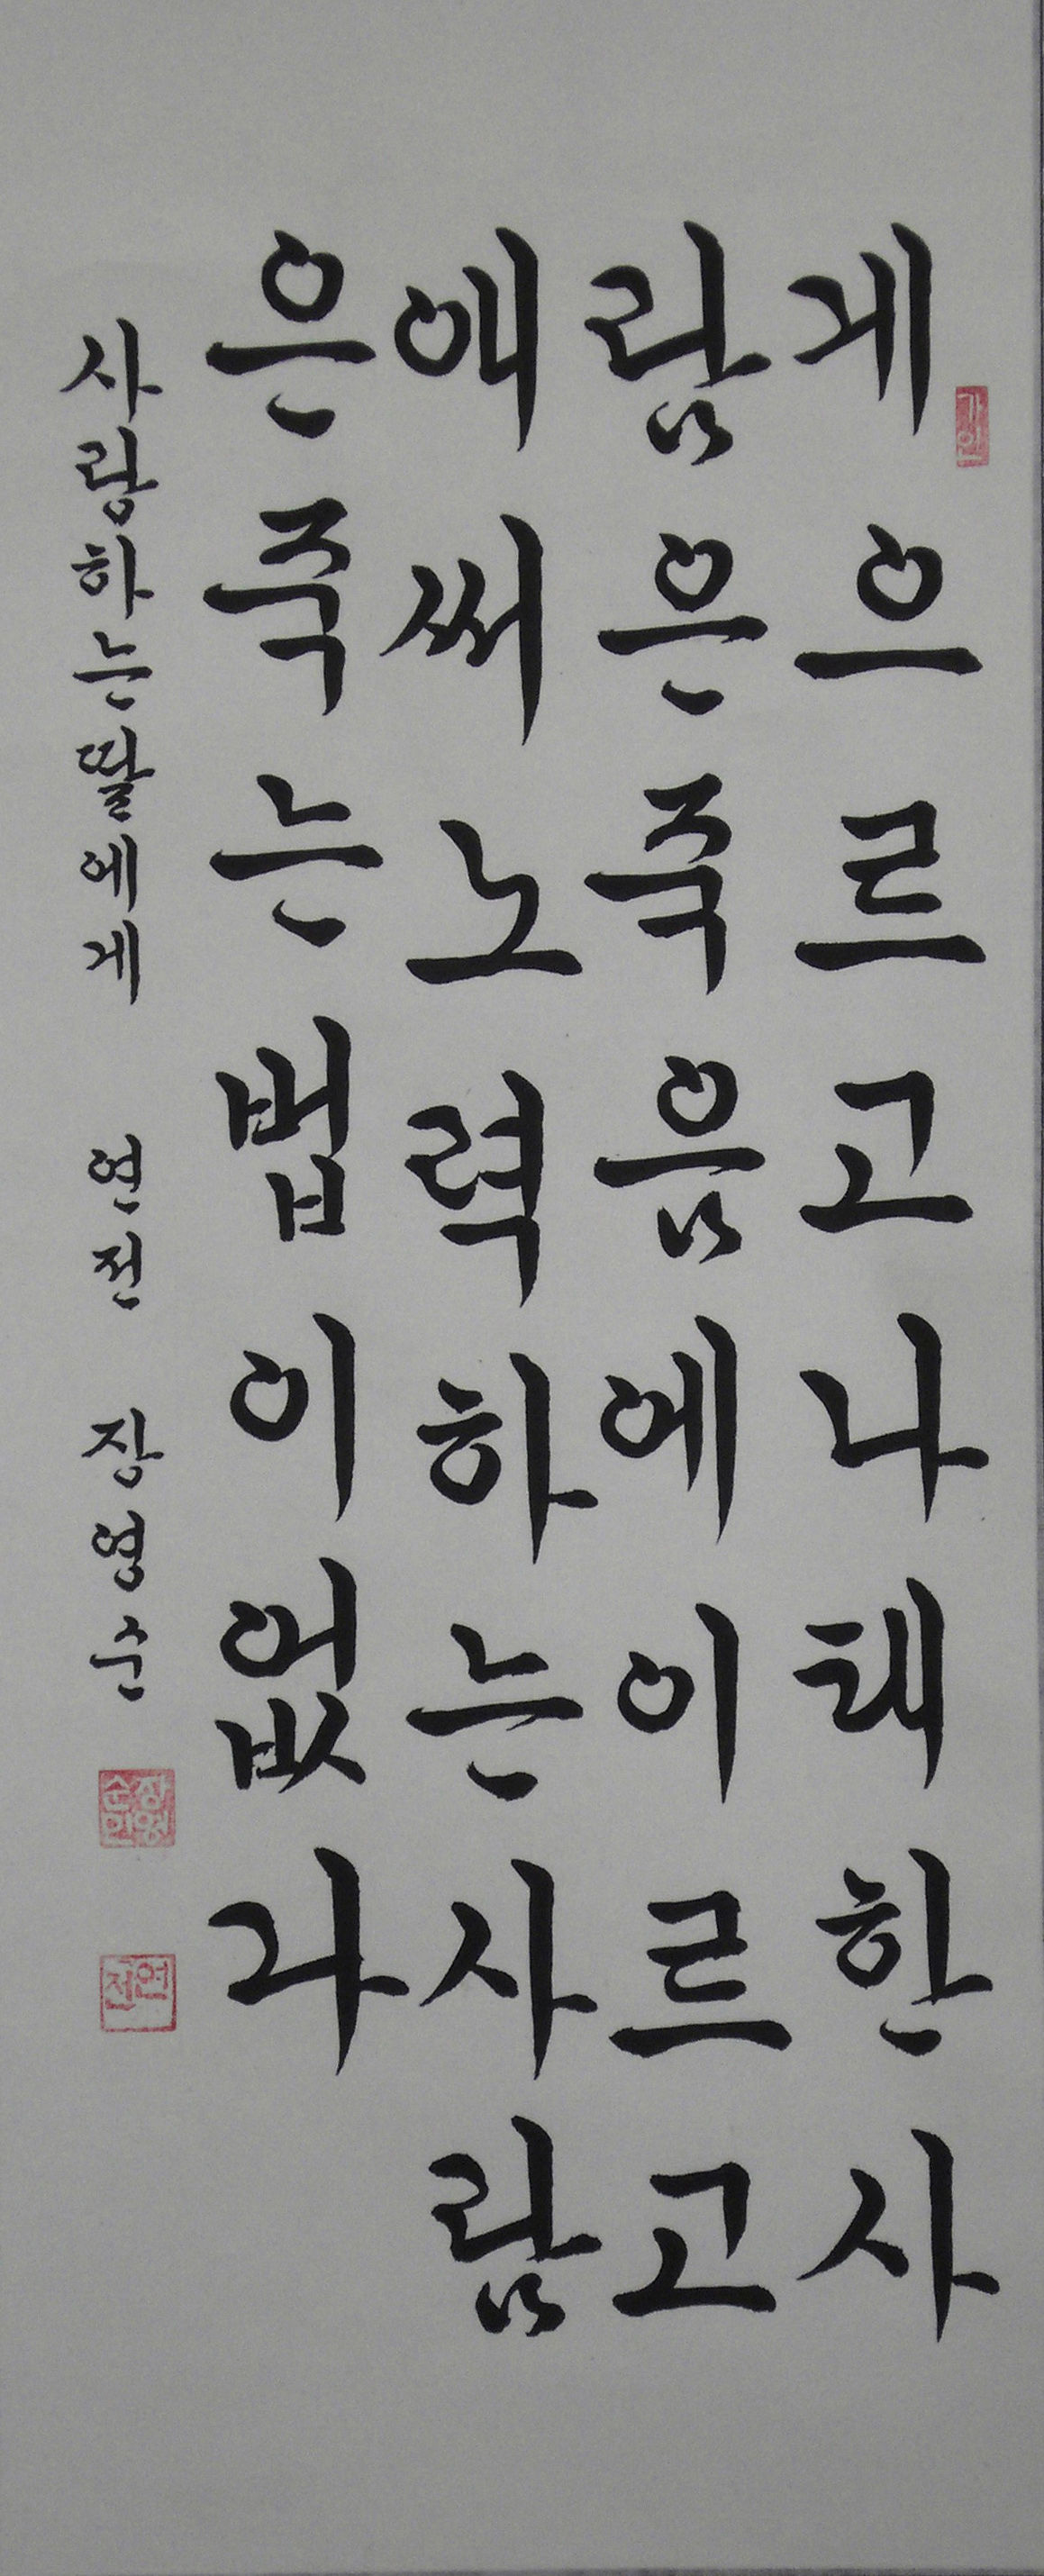 게으르고나태한사
람은죽음에이르고
애써노력하는사람
은죽는법이없다
사랑하는딸에게 연전 장영순
가인
장영순인
연전